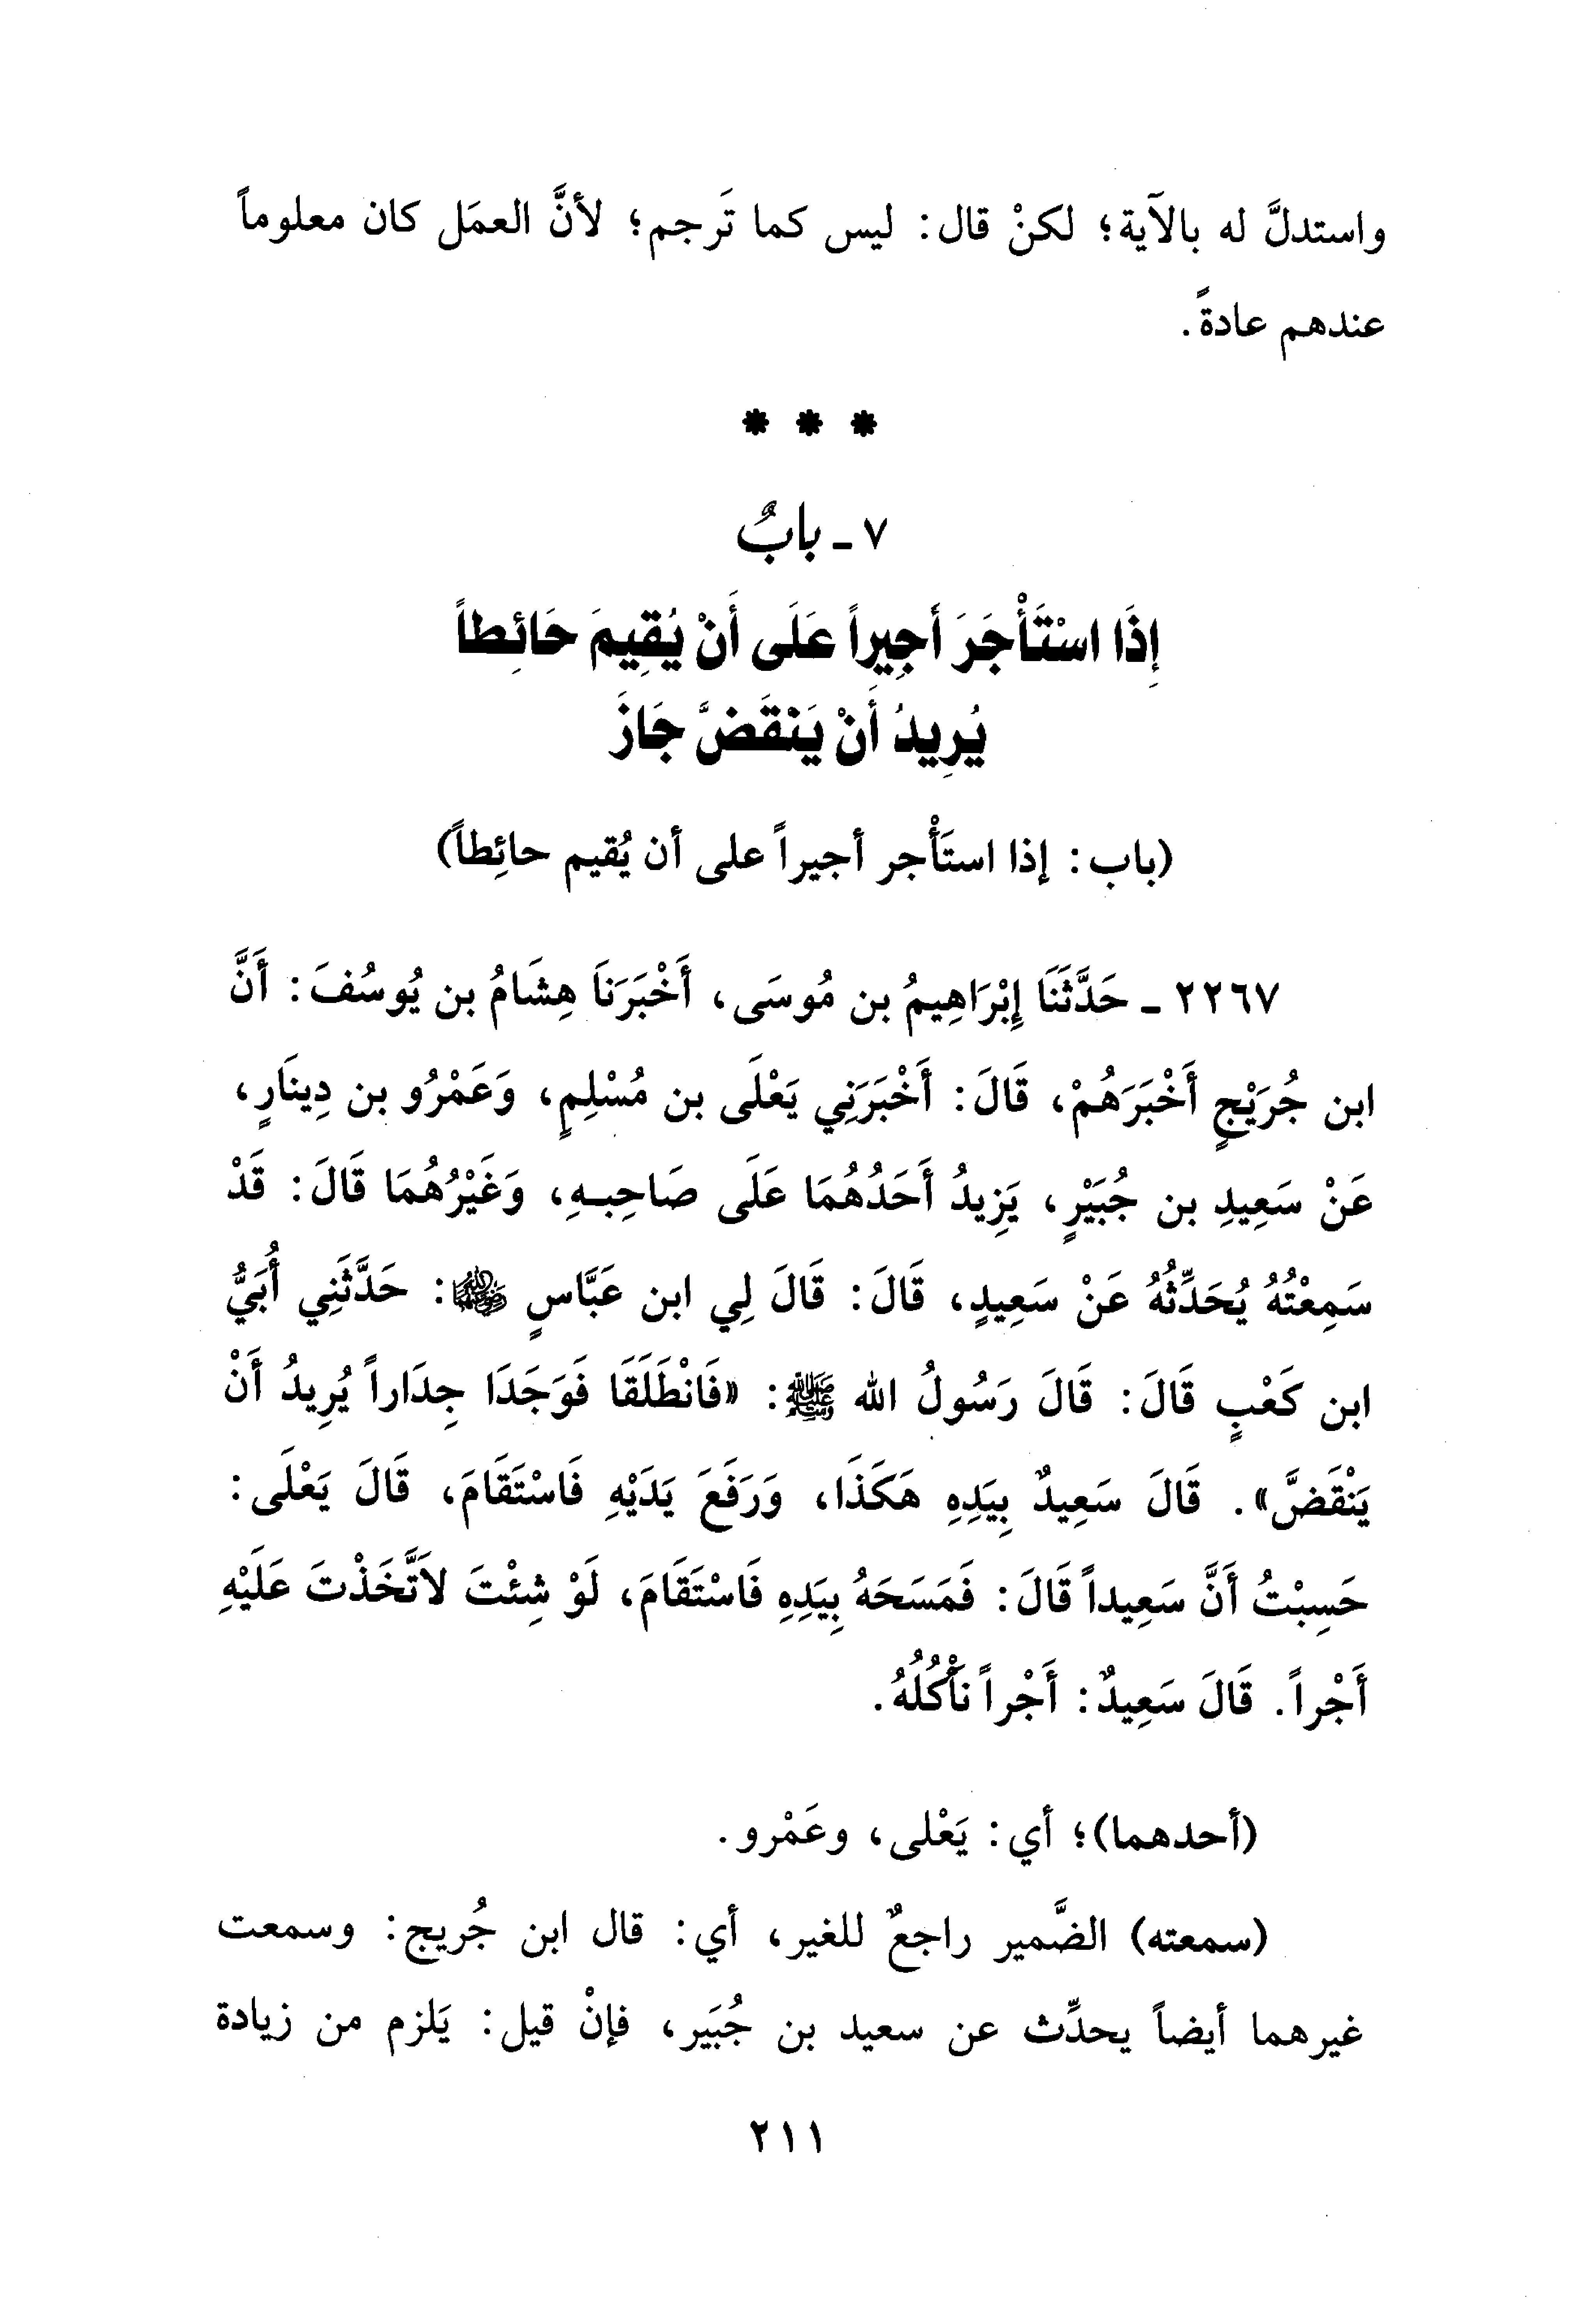 واستدلَّ له بالآية؛ لكنْ قال: ليس كما تَرجم؛ لأنَّ العمَل كان معلوماً
عندهم عادةً.
* * *
٧ - بابٌ
إِذَا اسْتَأْجَرَ أَجِيراً عَلَى أَنْ يُقِيمَ حَائِطاً
يُرِيدُ أَنْ يَنْقَضَّ جَازَ
(باب: إذا استَأْجر أجيراً على أن يُقيم حائِطاً)
٢٢٦٧ - حَدَّثَنَا إِبْرَاهِيمُ بن مُوسَى، أَخْبَرَنَا هِشَامُ بن يُوسُفَ: أَنَّ
ابن جُرَيْجٍ أَخْبَرَهُمْ، قَالَ: أَخْبَرَنِي يَعْلَى بن مُسْلِمٍ، وَعَمْرُو بن دِينَارٍ،
عَنْ سَعِيدِ بن جُبَيْرٍ، يَزِيدُ أَحَدُهُمَا عَلَى صَاحِبِهِ، وَغَيْرُهُمَا قَالَ: قَدْ
سَمِعْتُهُ يُحَدِّثُهُ عَنْ سَعِيدٍ، قَالَ: قَالَ لِي ابن عَبَّاسٍ رضي الله عنهما: حَدَّثَنِي أُبَيُّ
ابن كَعْبٍ قَالَ: قَالَ رَسُولُ الله ﷺ: «فَانْطَلَقَا فَوَجَدَا جِدَاراً يُرِيدُ أَنْ
يَنْقَضَّ». قَالَ سَعِيدٌ بِيَدِهِ هَكَذَا، وَرَفَعَ يَدَيْهِ فَاسْتَقَامَ، قَالَ يَعْلَى:
حَسِبْتُ أَنَّ سَعِيداً قَالَ: فَمَسَحَهُ بِيَدِهِ فَاسْتَقَامَ، لَوْ شِئْتَ لاَتَّخَذْتَ عَلَيْهِ
أَجْراً. قَالَ سَعِيدٌ: أَجْراً نَأْكُلُهُ.
(أحدهما)؛ أي: يَعْلى، وعَمْرو.
(سمعته) الضَّمير راجعٌ للغير، أي: قال ابن جُريج: وسمعت
غيرهما أيضاً يحدِّث عن سعيد بن جُبَير، فإنْ قيل: يَلزم من زيادة
٢١١